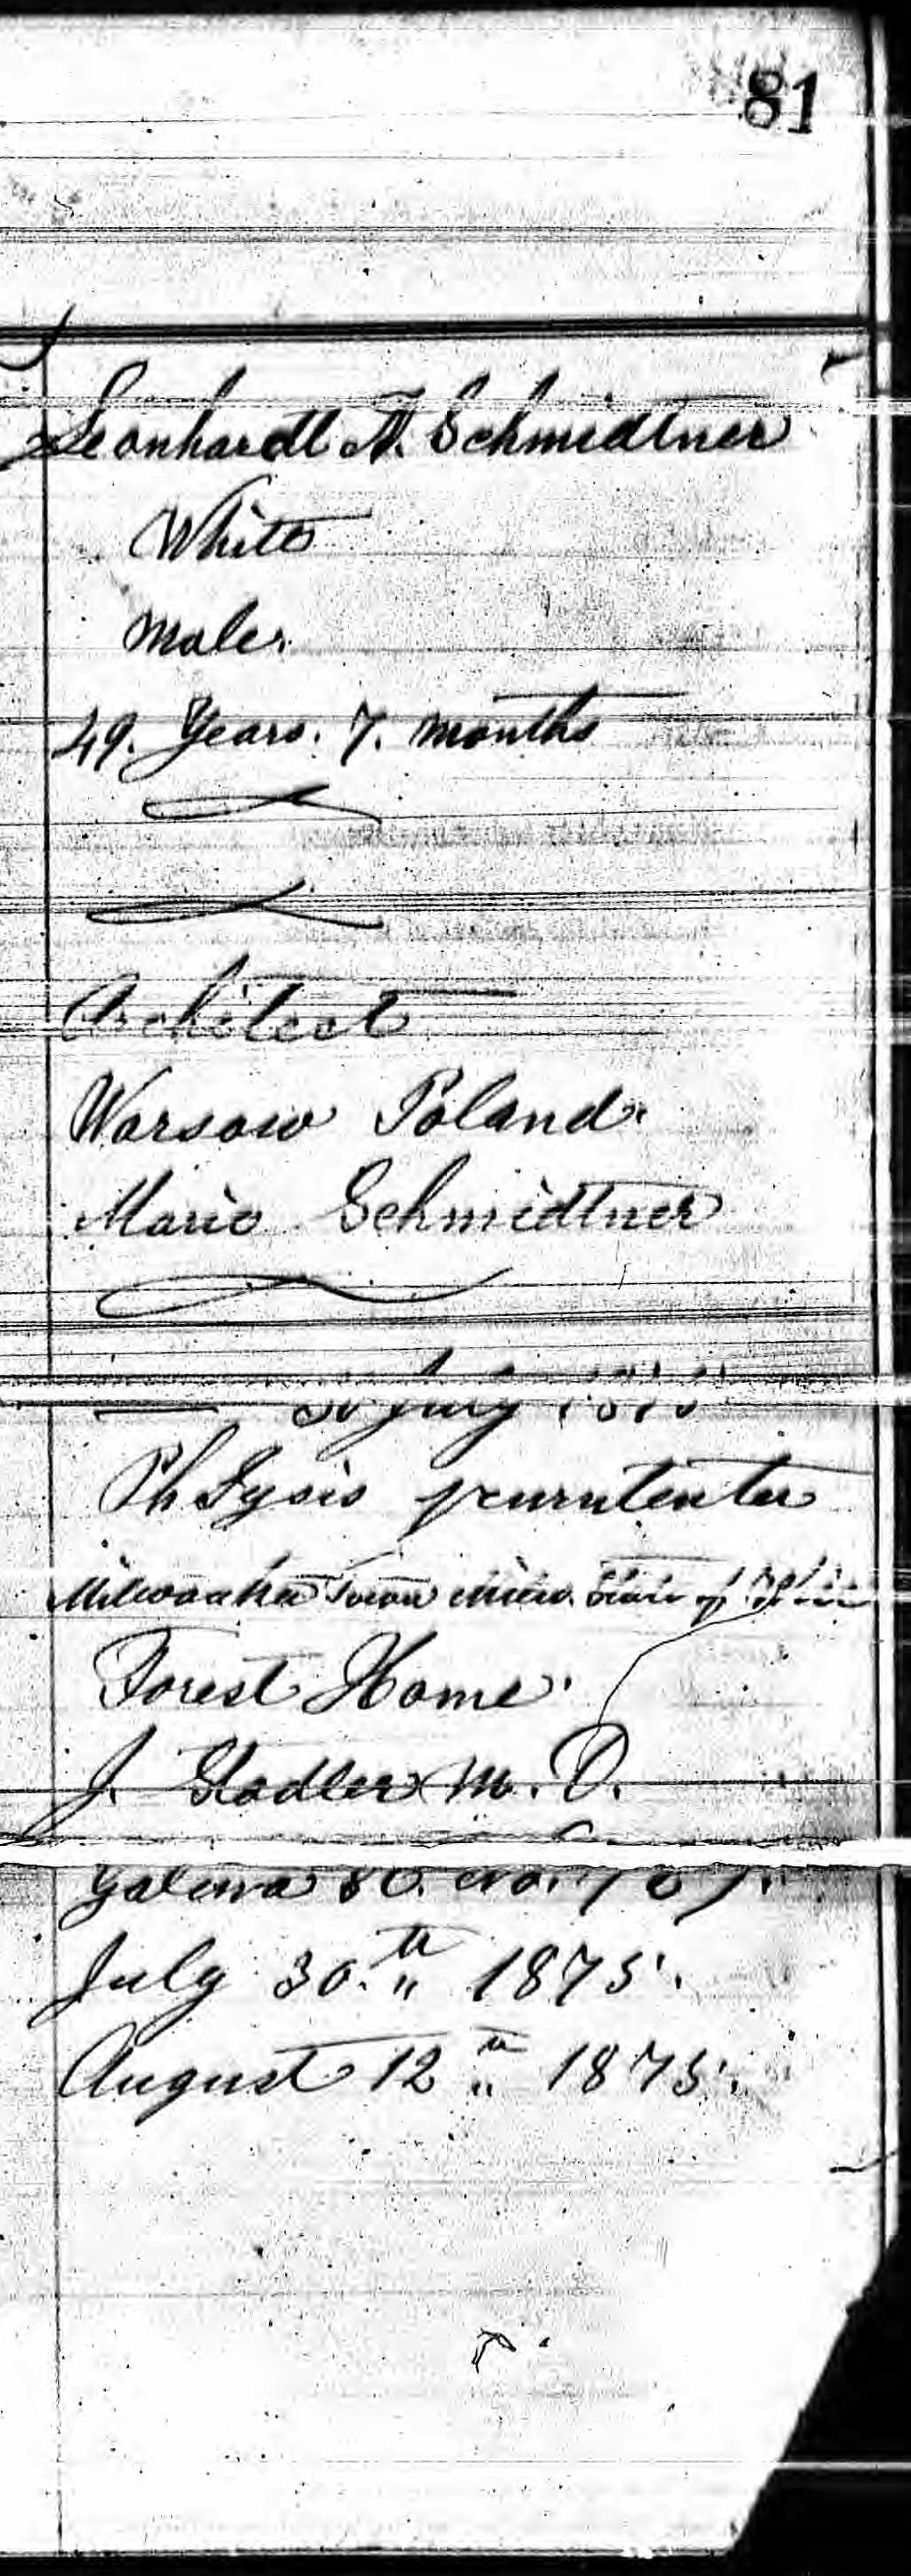 81
Leonhardt A. Schmidtner
White
Male.
49. Years. 7. Months
Architect
Warsaw Poland.
Marie Schmidtner
July
Phtysis
Milwaukee Town Milw. State of
Forest Home.
J. Stadler M. D.
Galena St. No.
July 30.th 1875.
August 12th 1875.